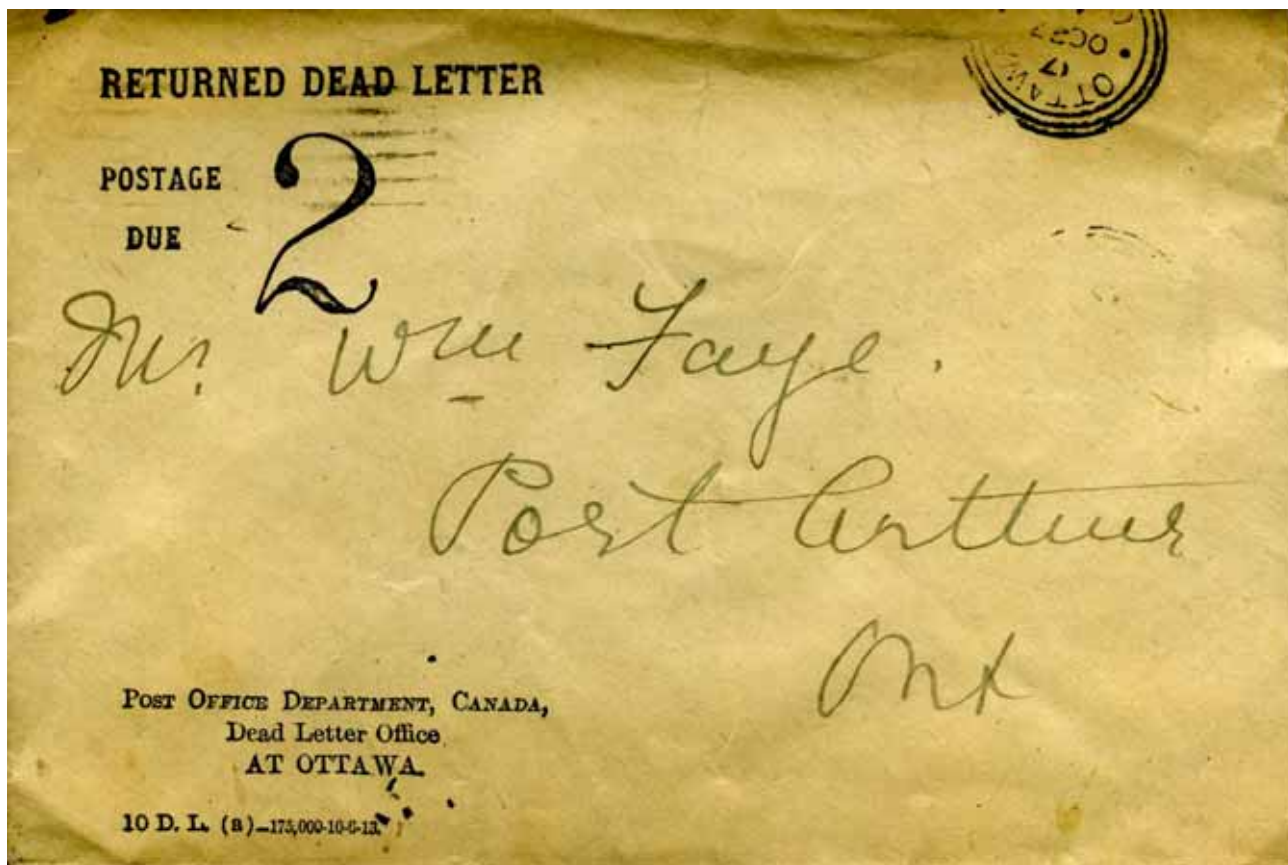 RETURNED DEAD LETTER
POSTAGE
DUE
2
OTTAWA
17
OC 27
Mr. Wm Faye.
Port Arthur
Ont
POST OFFICE DEPARTMENT, CANADA,
Dead Letter Office
AT OTTAWA.
10 D. L. (a)–175,000-10-6-13.